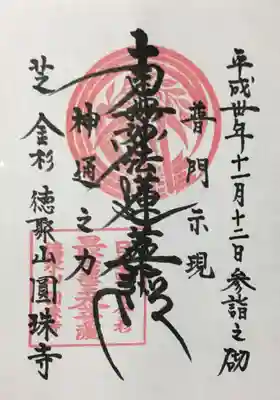 平成卅年十一月十二日参詣之砌
普門示現
南無妙法蓮華経
神通之力
芝金杉徳聚山圓珠寺